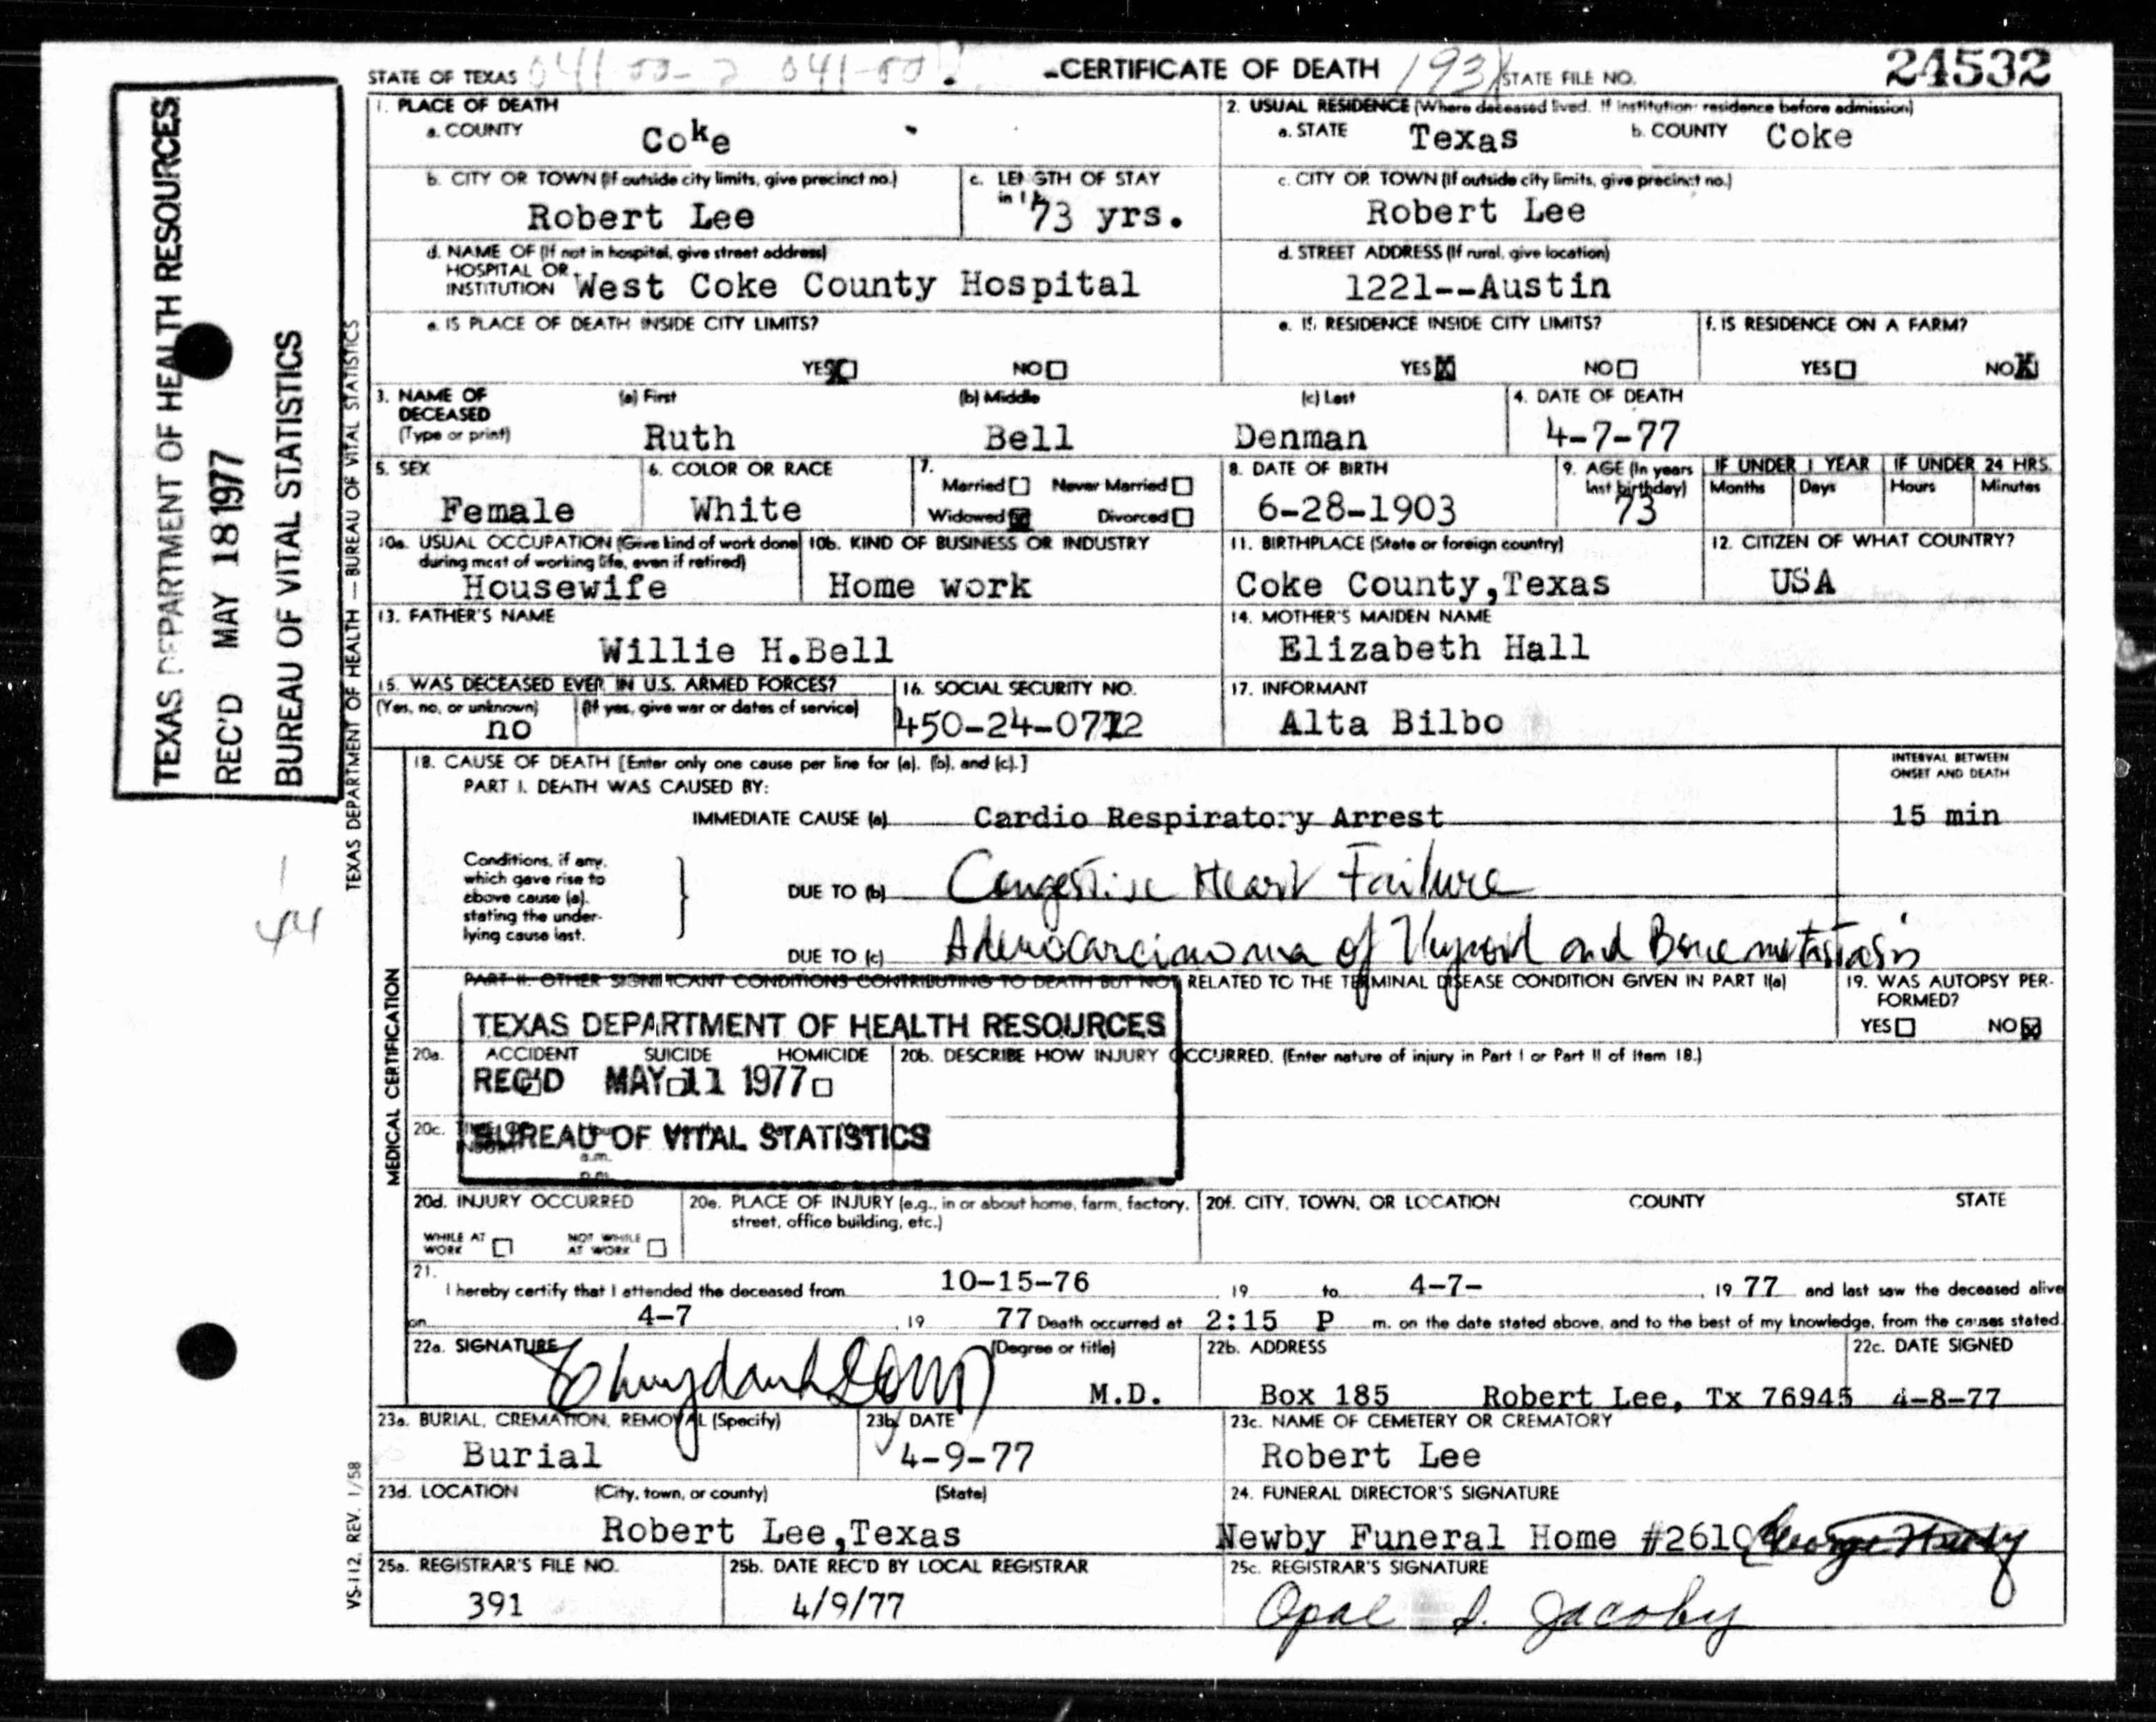 STATE OF TEXAS
CERTIFICATE OF DEATH
STATE FILE NO. 24532
TEXAS DEPARTMENT OF HEALTH RESOURCES
REC'D MAY 18 1977
BUREAU OF VITAL STATISTICS
TEXAS DEPARTMENT OF HEALTH — BUREAU OF VITAL STATISTICS
1. PLACE OF DEATH
a. COUNTY Coke
2. USUAL RESIDENCE (Where deceased lived. If institution: residence before admission)
a. STATE Texas b. COUNTY Coke
b. CITY OR TOWN (If outside city limits, give precinct no.)
Robert Lee
c. LENGTH OF STAY
73 yrs.
c. CITY OR TOWN (If outside city limits, give precinct no.)
Robert Lee
d. NAME OF (If not in hospital, give street address)
HOSPITAL OR
INSTITUTION West Coke County Hospital
d. STREET ADDRESS (If rural, give location)
1221--Austin
e. IS PLACE OF DEATH INSIDE CITY LIMITS?
YES NO
e. IS RESIDENCE INSIDE CITY LIMITS?
YES NO
f. IS RESIDENCE ON A FARM?
YES NO
3. NAME OF DECEASED (Type or print)
(a) First (b) Middle (c) Last
Ruth Bell Denman
4. DATE OF DEATH
4-7-77
5. SEX
Female
6. COLOR OR RACE
White
7.
Married Never Married
Widowed Divorced
8. DATE OF BIRTH
6-28-1903
9. AGE (In years last birthday)
73
IF UNDER 1 YEAR
Months Days
IF UNDER 24 HRS.
Hours Minutes
10a. USUAL OCCUPATION (Give kind of work done during most of working life, even if retired)
Housewife
10b. KIND OF BUSINESS OR INDUSTRY
Home work
11. BIRTHPLACE (State or foreign country)
Coke County,Texas
12. CITIZEN OF WHAT COUNTRY?
USA
13. FATHER'S NAME
Willie H.Bell
14. MOTHER'S MAIDEN NAME
Elizabeth Hall
15. WAS DECEASED EVER IN U.S. ARMED FORCES?
(Yes, no, or unknown) (If yes, give war or dates of service)
no
16. SOCIAL SECURITY NO.
17. INFORMANT
Alta Bilbo
MEDICAL CERTIFICATION
18. CAUSE OF DEATH [Enter only one cause per line for (a), (b), and (c).]
INTERVAL BETWEEN
ONSET AND DEATH
PART I. DEATH WAS CAUSED BY:
IMMEDIATE CAUSE (a) Cardio Respiratory Arrest 15 min
Conditions, if any,
which gave rise to
above cause (a),
stating the under-
lying cause last.
DUE TO (b) Congestive Heart Failure
DUE TO (c) Adenocarcinoma of Thyroid and Bone metastasis
44
PART II. OTHER SIGNIFICANT CONDITIONS CONTRIBUTING TO DEATH BUT NOT RELATED TO THE TERMINAL DISEASE CONDITION GIVEN IN PART I(a)
19. WAS AUTOPSY PER-
FORMED?
YES NO
TEXAS DEPARTMENT OF HEALTH RESOURCES
REC'D MAY 11 1977
BUREAU OF VITAL STATISTICS
20a. ACCIDENT SUICIDE HOMICIDE
20b. DESCRIBE HOW INJURY OCCURRED. (Enter nature of injury in Part I or Part II of Item 18.)
20c.
a.m.
p.m.
20d. INJURY OCCURRED
WHILE AT WORK NOT WHILE AT WORK
20e. PLACE OF INJURY (e.g., in or about home, farm, factory, street, office building, etc.)
20f. CITY, TOWN, OR LOCATION COUNTY STATE
21.
I hereby certify that I attended the deceased from 10-15-76, 19 to 4-7-, 19 77 and last saw the deceased alive
on 4-7, 19 77 Death occurred at 2:15 P m. on the date stated above, and to the best of my knowledge, from the causes stated.
22a. SIGNATURE (Degree or title)
M.D.
22b. ADDRESS
Box 185 Robert Lee, Tx 76945
22c. DATE SIGNED
4-8-77
23a. BURIAL, CREMATION, REMOVAL (Specify)
Burial
23b. DATE
4-9-77
23c. NAME OF CEMETERY OR CREMATORY
Robert Lee
23d. LOCATION (City, town, or county) (State)
Robert Lee,Texas
24. FUNERAL DIRECTOR'S SIGNATURE
Newby Funeral Home #2610 George Newby
25a. REGISTRAR'S FILE NO.
391
25b. DATE REC'D BY LOCAL REGISTRAR
4/9/77
25c. REGISTRAR'S SIGNATURE
Opal S. Jacoby
VS-112, REV. 1/58